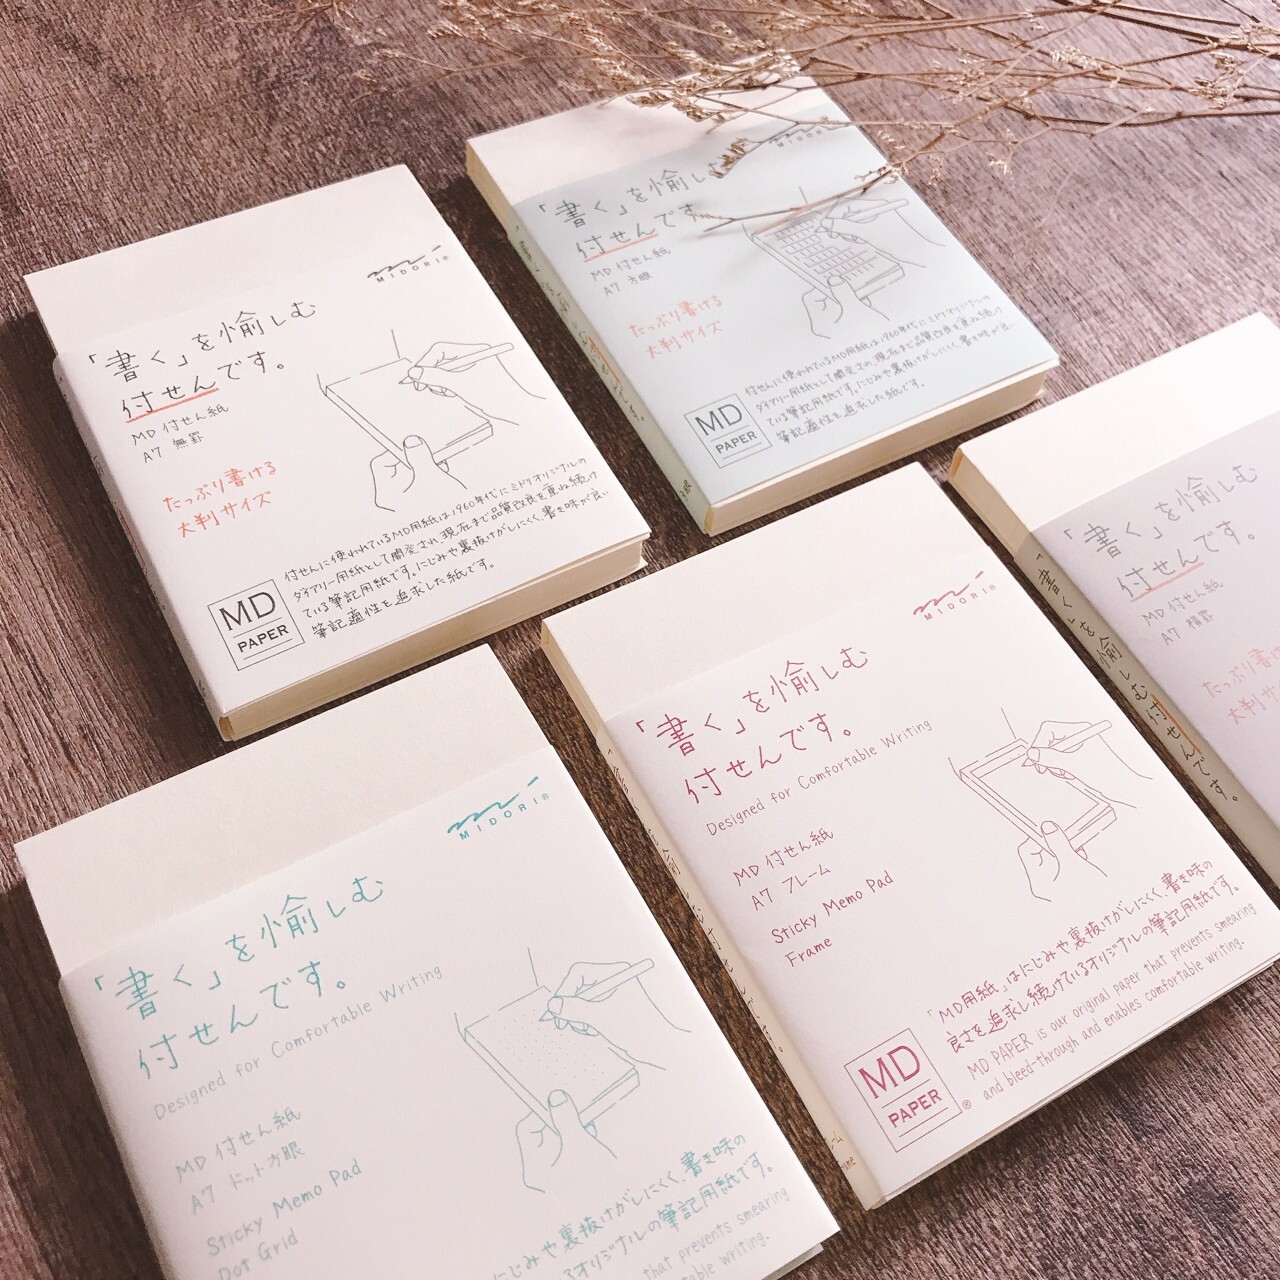 MIDORI®
「書く」を愉しむ
付せんです。
MD 付せん紙
A7 無罫
たっぷり書ける
大判サイズ
付せんに使われているMD用紙は、1960年代にミドリオリジナルの
ダイアリー用紙として開発され、現在まで品質改良を重ね続け
ている筆記用紙です。にじみや裏抜けがしにくく、書き味が良い
筆記適性を追求した紙です。
MD
PAPER
MIDORI
「書く」を愉し
付せんです。
MD 付せん紙
A7 方眼
たっぷり書ける
大判サイズ
付せんに使われているMD用紙は、1960年代にミドリオリジナルの
ダイアリー用紙として開発され、現在まで品質改良を重ね続け
ている筆記用紙です。にじみや裏抜けがしにくく、書き味が良い
筆記適性を追求した紙です。
MD
PAPER
「書く」を愉しむ
付せんです。
MD 付せん紙
A7 横罫
たっぷり書
大判サイ
「書く」を愉しむ付せんです。
MIDORI®
「書く」を愉しむ
付せんです。
Designed for Comfortable Writing
MD 付せん紙
A7 フレーム
Sticky Memo Pad
Frame
「MD用紙」はにじみや裏抜けがしにくく、書き味の
良さを追求し続けているオリジナルの筆記用紙です。
MD PAPER is our original paper that prevents smearing
and bleed-through and enables comfortable writing.
MD
PAPER®
MIDORI®
「書く」を愉しむ
付せんです。
Designed for Comfortable Writing
MD 付せん紙
A7 ドット方眼
Sticky Memo Pad
Dot Grid
にじみや裏抜けがしにくく、書き味の
るオリジナルの筆記用紙です。
that prevents smearing
writing.